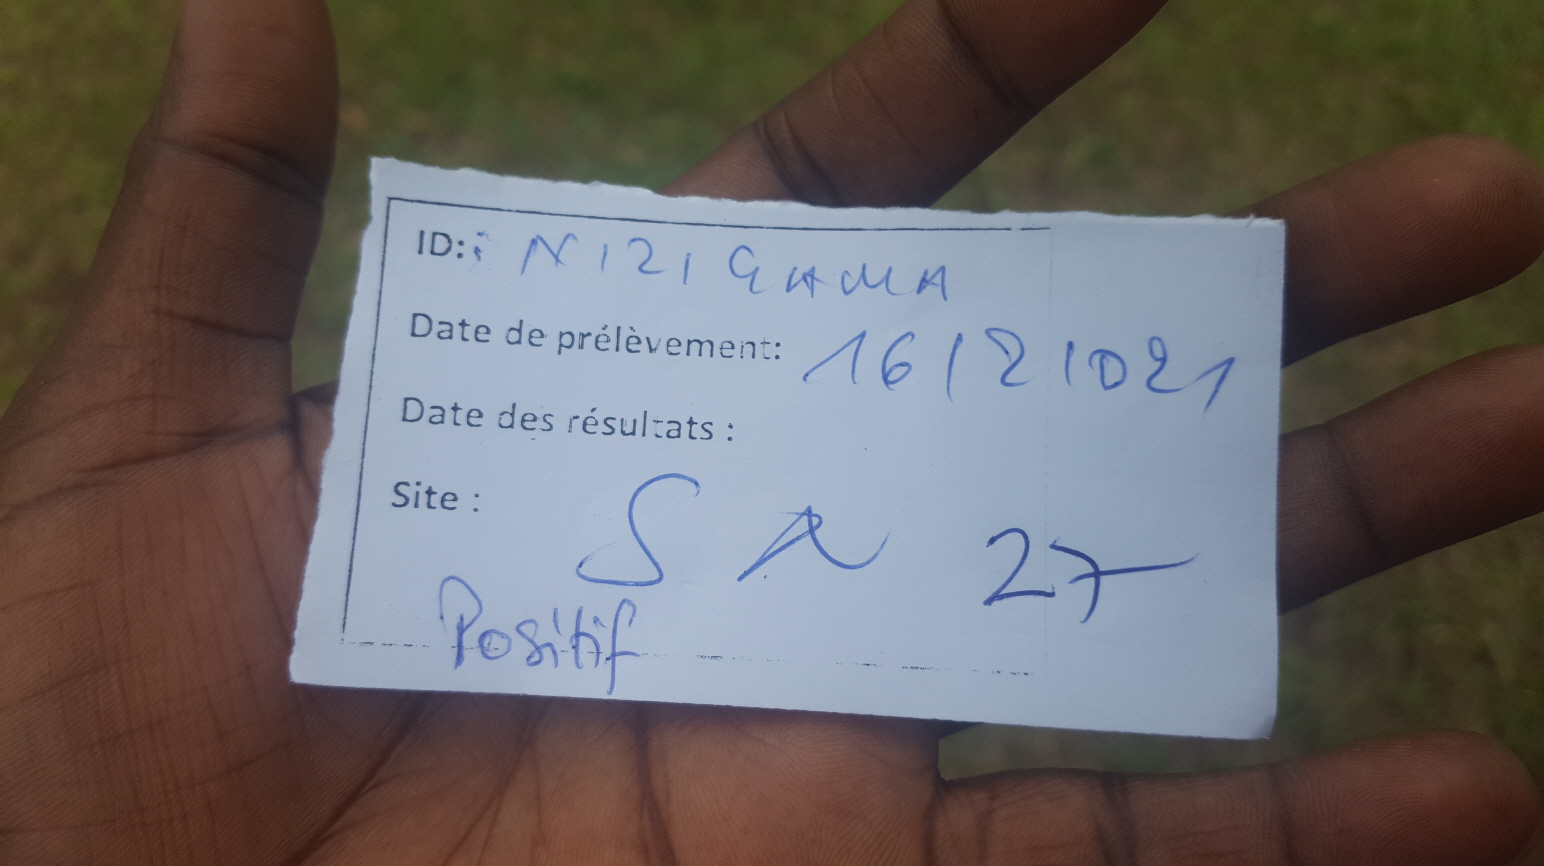 ID: : NIZIGAMA
Date de prélèvement: 16/2/021
Date des résultats :
Site : SN 27
Positif